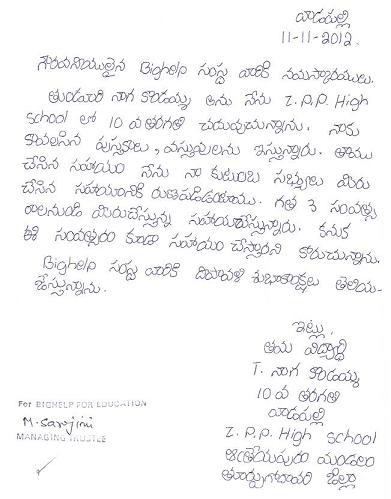 వాడపల్లి
11-11-2012.
గౌరవనీయులైన Bighelp సంస్థ వారికి నమస్కారములు.
తుండూరి నాగ కొండయ్య అను నేను Z.P.P. High
school లో 10 వ తరగతి చదువుచున్నాను. నాకు
కావలసిన పుస్తకాలు, వస్తువులను ఇస్తున్నారు. తాము
చేసిన సహాయం నేను నా కుటుంబ సభ్యులు మీరు
చేసిన సహాయానికి రుణపడివుంటాము. గత 3 సంవత్స
రాలనుండి మీరుచేస్తున్న సహాయంచేస్తున్నారు. కనుక
ఈ సంవత్సరం కూడా సహాయం చేస్తారని కోరుచున్నాను.
Bighelp సంస్థ వారికి దీపావళి శుభాకాంక్షలు తెలియ-
జేస్తున్నాను.
ఇట్లు,
తమ విద్యార్థి
T. నాగ కొండయ్య
10 వ తరగతి
వాడపల్లి
Z.P.P. High school
ఆత్రేయపురం మండలం
తూర్పుగోదావరి జిల్లా
For BIGHELP FOR EDUCATION
M. Sarojini
MANAGING TRUSTEE